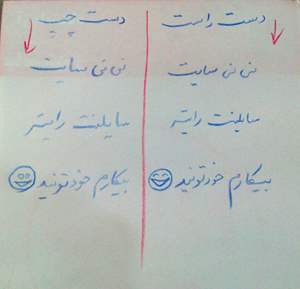 دست راست
نی نی سایت
سایلنت رایتر
بیکارم خودتونید
دست چپ
نی نی سایت
سایلنت رایتر
بیکارم خودتونید